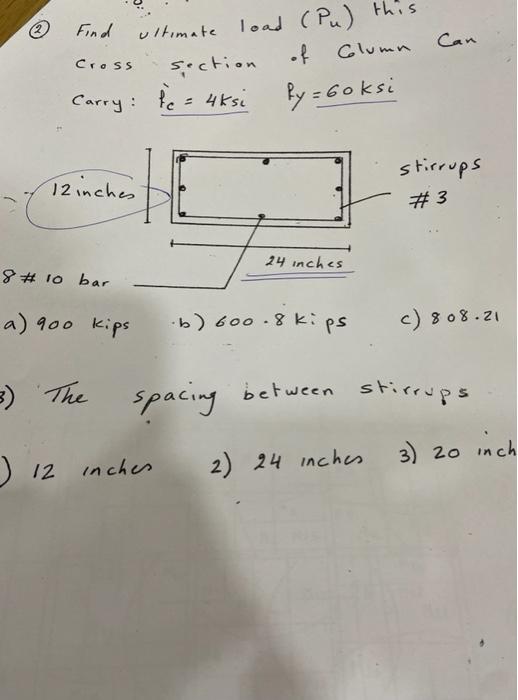 ② Find ultimate load (Pu) this
Cross section of Column Can
Carry: f'c = 4ksi fy = 60ksi
12 inches
stirrups
#3
24 inches
8 # 10 bar
a) 900 kips b) 600.8 kips c) 808.21
3) The spacing between stirrups
) 12 inches 2) 24 inches 3) 20 inch